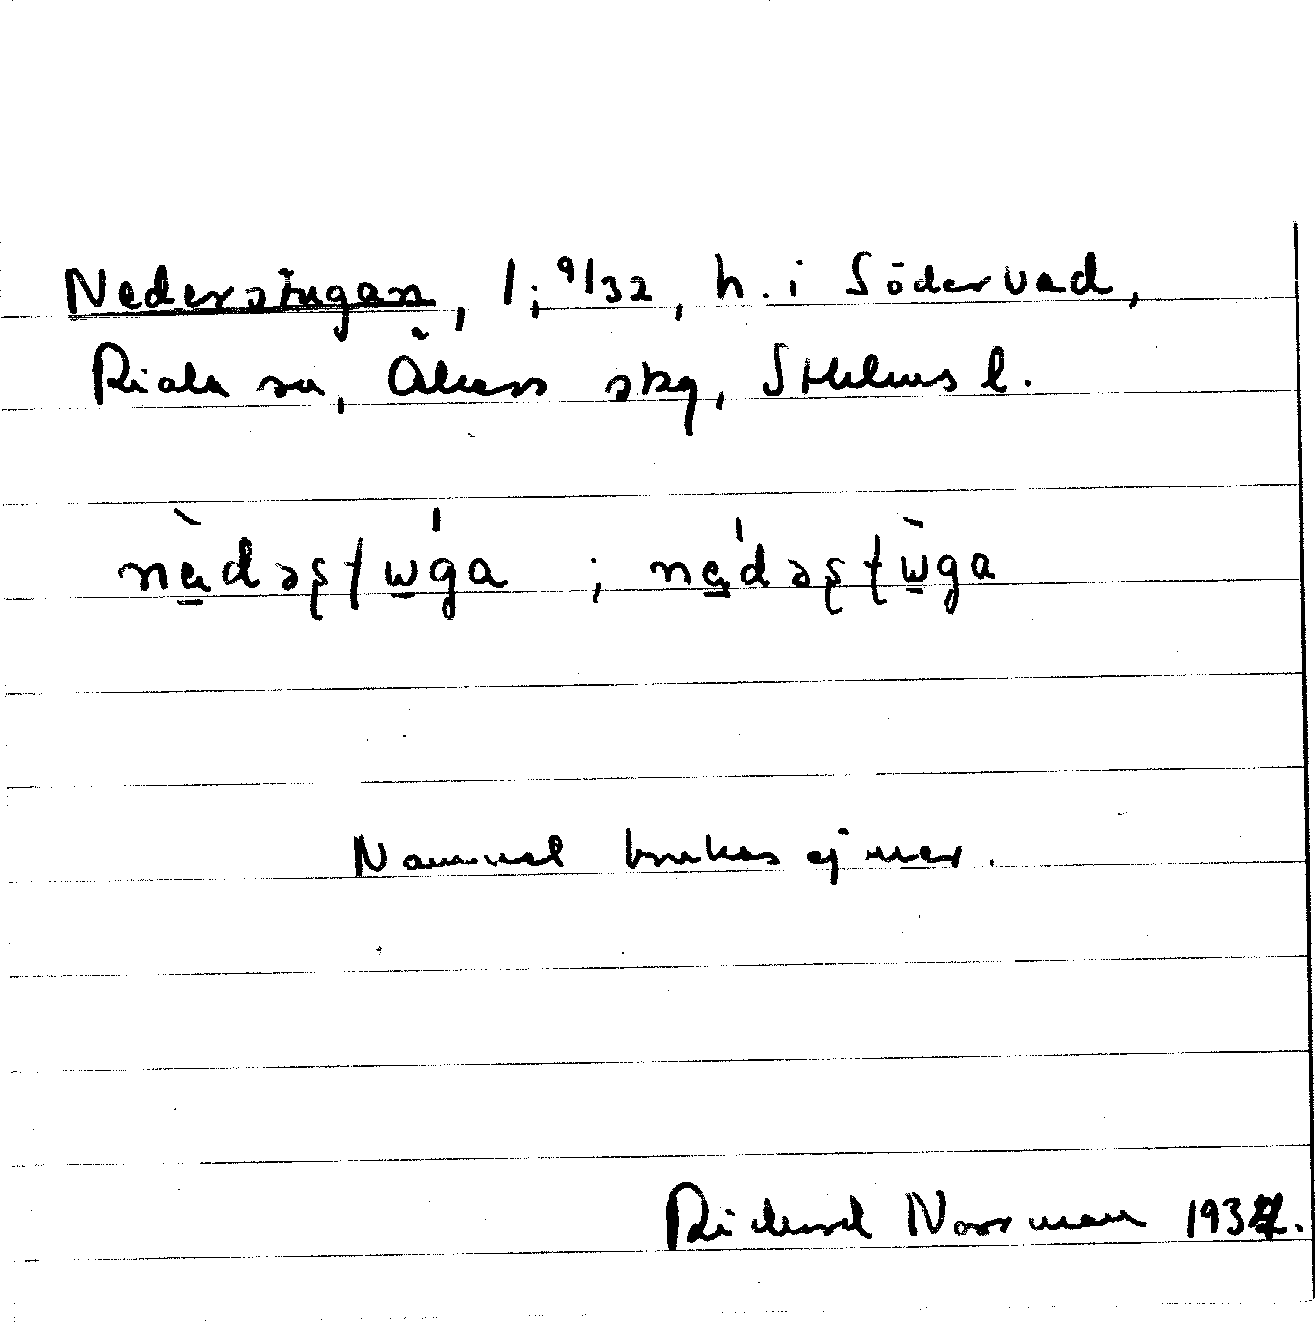 Nederstugan, 1; 9/32, h. i Södervad,
Riala sn, Åkers skg, Sthlms l.
nèdəʂʈɯ́ga ; nédəʂʈɯ̀ga
Namnet brukas ej mer.
Richard Norrman 1934.